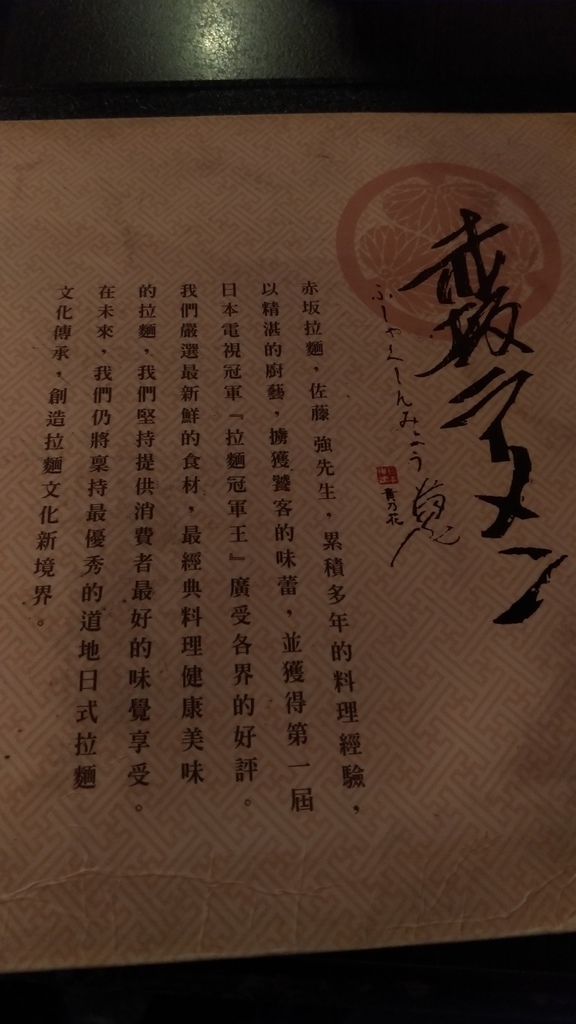 赤坂ラーメン
ふしゃくしんみょう
貴乃花
赤坂拉麵，佐藤 強先生，累積多年的料理經驗，
以精湛的廚藝，擄獲饕客的味蕾，並獲得第一屆
日本電視冠軍『拉麵冠軍王』廣受各界的好評。
我們嚴選最新鮮的食材，最經典料理健康美味
的拉麵，我們堅持提供消費者最好的味覺享受。
在未來，我們仍將稟持最優秀的道地日式拉麵
文化傳承，創造拉麵文化新境界。